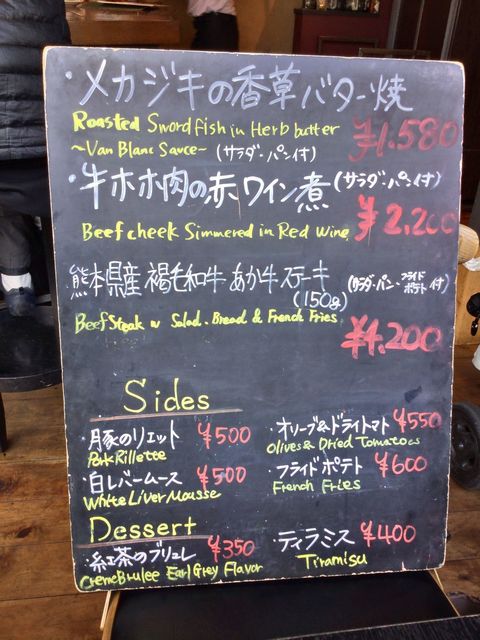 ・メカジキの香草バター焼
Roasted Swordfish in Herb butter
~Van Blanc Sauce~ (サラダ・パン付) ¥1.580
・牛ホホ肉の赤ワイン煮 (サラダ・パン付)
Beef cheek Simmered in Red Wine ¥2,200
熊本県産 褐毛和牛 あか牛ステーキ (サラダ・パン・フライドポテト付)
(150g)
Beef Steak w Salad. Bread & French Fries
¥4.200
Sides
・豚のリエット ¥500
Pork Rillette
・白レバームース ¥500
White Liver Mousse
・オリーブ&ドライトマト ¥550
Olives & Dried Tomatoes
・フライドポテト ¥600
French Fries
Dessert
・紅茶のブリュレ ¥350
Creme Brulee Earl Grey Flavor
・ティラミス ¥400
Tiramisu